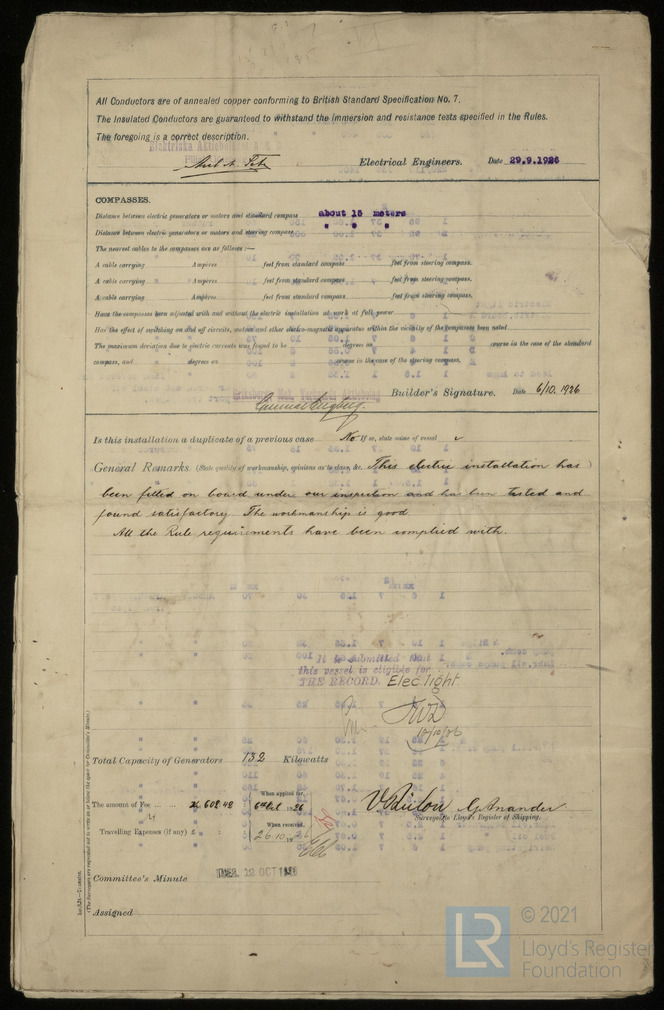 All Conductors are of annealed copper conforming to British Standard Specification No. 7.
The Insulated Conductors are guaranteed to withstand the immersion and resistance tests specified in the Rules.
The foregoing is a correct description.
Elektriska Aktiebolaget
Electrical Engineers. Date 29.9.1926
COMPASSES.
Distance between electric generators or motors and standard compass about 15 meters
Distance between electric generators or motors and steering compass " " "
The nearest cables to the compasses are as follows :—
A cable carrying Ampères feet from standard compass feet from steering compass.
A cable carrying Ampères feet from standard compass feet from steering compass.
A cable carrying Ampères feet from standard compass feet from steering compass.
Have the compasses been adjusted with and without the electric installation at work at full power
Has the effect of switching on and off circuits, motors and other electro-magnetic apparatus within the vicinity of the compasses been noted
The maximum deviation due to electric currents was found to be degrees on course in the case of the standard
compass, and degrees on course in the case of the steering compass.
Builder's Signature. Date 6/10. 1926
Is this installation a duplicate of a previous case No If so, state name of vessel
General Remarks (State quality of workmanship, opinions as to class, &c. This electric installation has )
been fitted on board under our inspection and has been tested and
found satisfactory. The workmanship is good.
All the Rule requirements have been complied with.
It is submitted that
this vessel is eligible for
THE RECORD. Elec light
Total Capacity of Generators 132 Kilowatts
The amount of Fee ... ... 608.48 When applied for, 26
When received,
Travelling Expenses (if any) £ : : 26.10.19 26
Surveyor to Lloyd's Register of Shipping.
Committee's Minute
Assigned
© 2021
LR Lloyd's Register
Foundation